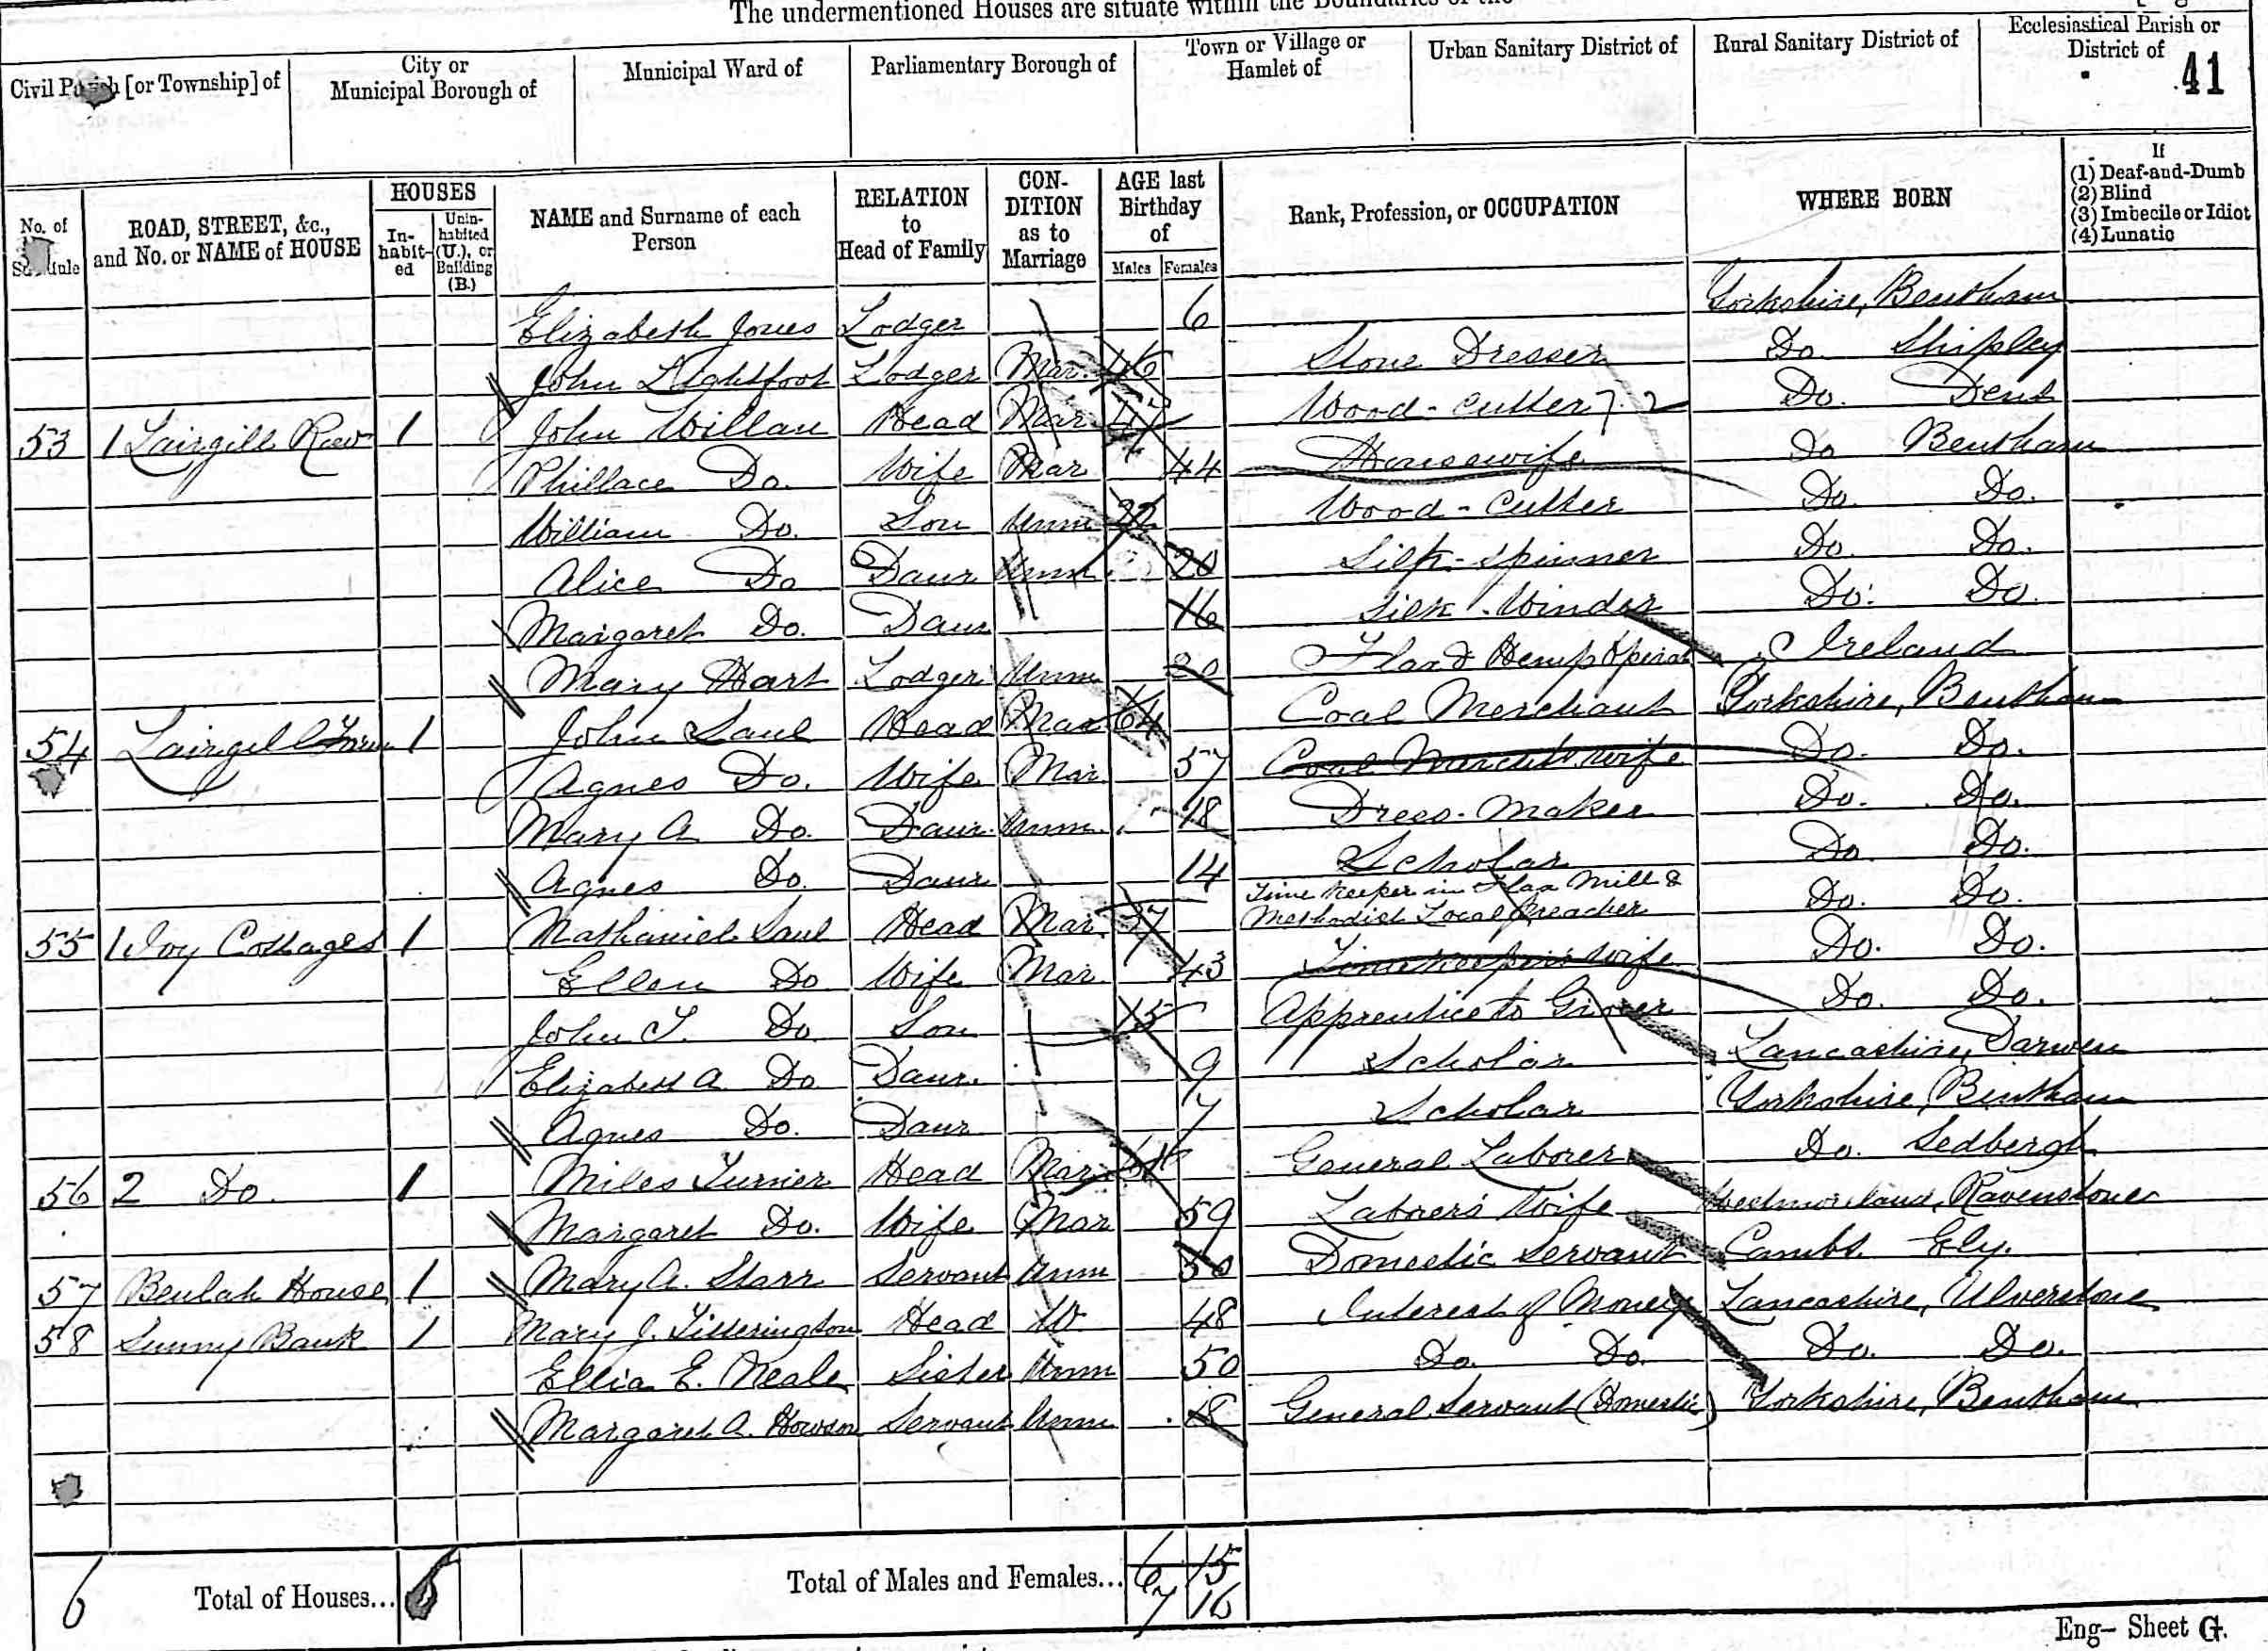 The undermentioned Houses are situate within the Boundaries of the
Civil Parish [or Township] of
City or Municipal Borough of
Municipal Ward of
Parliamentary Borough of
Town or Village or Hamlet of
Urban Sanitary District of
Rural Sanitary District of
Ecclesiastical Parish or District of
41
No. of Schedule
ROAD, STREET, &c., and No. or NAME of HOUSE
HOUSES
In-habit-ed
Unin-habited (U.), or Building (B.)
NAME and Surname of each Person
RELATION to Head of Family
CON-DITION as to Marriage
AGE last Birthday of
Males Females
Rank, Profession, or OCCUPATION
WHERE BORN
If
(1) Deaf-and-Dumb
(2) Blind
(3) Imbecile or Idiot
(4) Lunatic
Elizabeth Jones Lodger 6 Yorkshire, Bentham
John Lightfoot Lodger Mar. 46 Stone Dresser Do. Shipley
53 1 Lairgill Row 1 John Willan Head Mar 47 Wood-cutter Do. Dent
Phillace Do. Wife Mar 44 Housewife Do Bentham
William Do. Son Unm 22 Wood-cutter Do. Do.
Alice Do Daur Unm 20 Silk-spinner Do. Do.
Margaret Do. Daur 16 Silk-Winder Do. Do.
Mary Hart Lodger Unm 20 Flax & Hemp Operat Ireland
54 Lairgill 1 John Saul Head Mar 64 Coal Merchant Yorkshire, Bentham
Agnes Do. Wife Mar. 57 Coal Marcht's wife Do. Do.
Mary A Do. Daur. Unm. 18 Dress-Maker Do. Do.
Agnes Do. Daur 14 Scholar Do. Do.
55 1 Ivy Cottages 1 Nathaniel Saul Head Mar. 37 Time Keeper in Flax Mill & Methodist Local Preacher Do. Do.
Ellen Do Wife Mar. 43 Timekeeper's wife Do. Do.
John T. Do. Son 15 Apprentice to Grocer Do. Do.
Elizabeth A Do Daur. 9 Scholar Lancashire, Darwen
Agnes Do. Daur 7 Scholar Yorkshire, Bentham
56 2 Do. 1 Miles Turner Head Mar General Laborer Do. Sedbergh
Margaret Do. Wife Mar 59 Laborer's Wife Westmorland, Ravenstone
57 Beulah House 1 Mary A. Starr Servant Unm 30 Domestic Servant Cambs. Ely.
58 Sunny Bank 1 Mary J. Titterington Head W. 48 Interest of Money Lancashire, Ulverstone
E. Neale Sister Unm 50 Do. Do. Do. Do.
Margaret A. Howson Servant Unm 18 General Servant (Domestic) Yorkshire, Bentham
6 Total of Houses... 6 Total of Males and Females... 6 15
7 16
Eng- Sheet G.